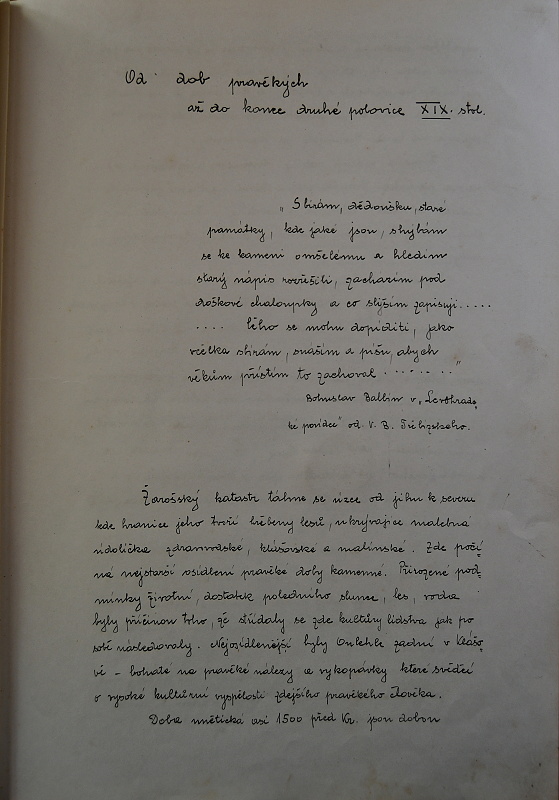 Od dob pravěkých
až do konce druhé polovice XIX. stol.
„Sbírám, dědoušku, staré
památky, kde jaké jsou, shýbám
se ke kameni omšelému a hledím
starý nápis rozřešiti, zacházím pod
doškové chaloupky a co slyším zapisuji.....
.... čeho se mohu dopíditi, jako
včelka sbírám, snáším a píšu, abych
věkům příštím to zachoval ......."
Bohuslav Balbín v „Levohrad
ké povídce" od V. B. Třebízského.
Žarošský katastr táhne se úzce od jihu k severu
kde hranice jeho tvoří hřebeny lesů, ukrývajíce malebná
údolíčka zdravovodské, klášovské a malínské. Zde počí
ná nejstarší osídlení pravěké doby kamenné. Přirozené pod
mínky životní, dostatek poledního slunce, les, voda
byly příčinou toho, že střídaly se zde kultury lidstva jak po
sobě následovaly. Nejosídlenější byly Onlehle zadní v Klášo
vě - bohaté na pravěké nálezy a vykopávky které svědčí
o vysoké kulturní vyspělosti zdejšího pravěkého člověka.
Doba unětická asi 1500 před Kr. jsou dobou